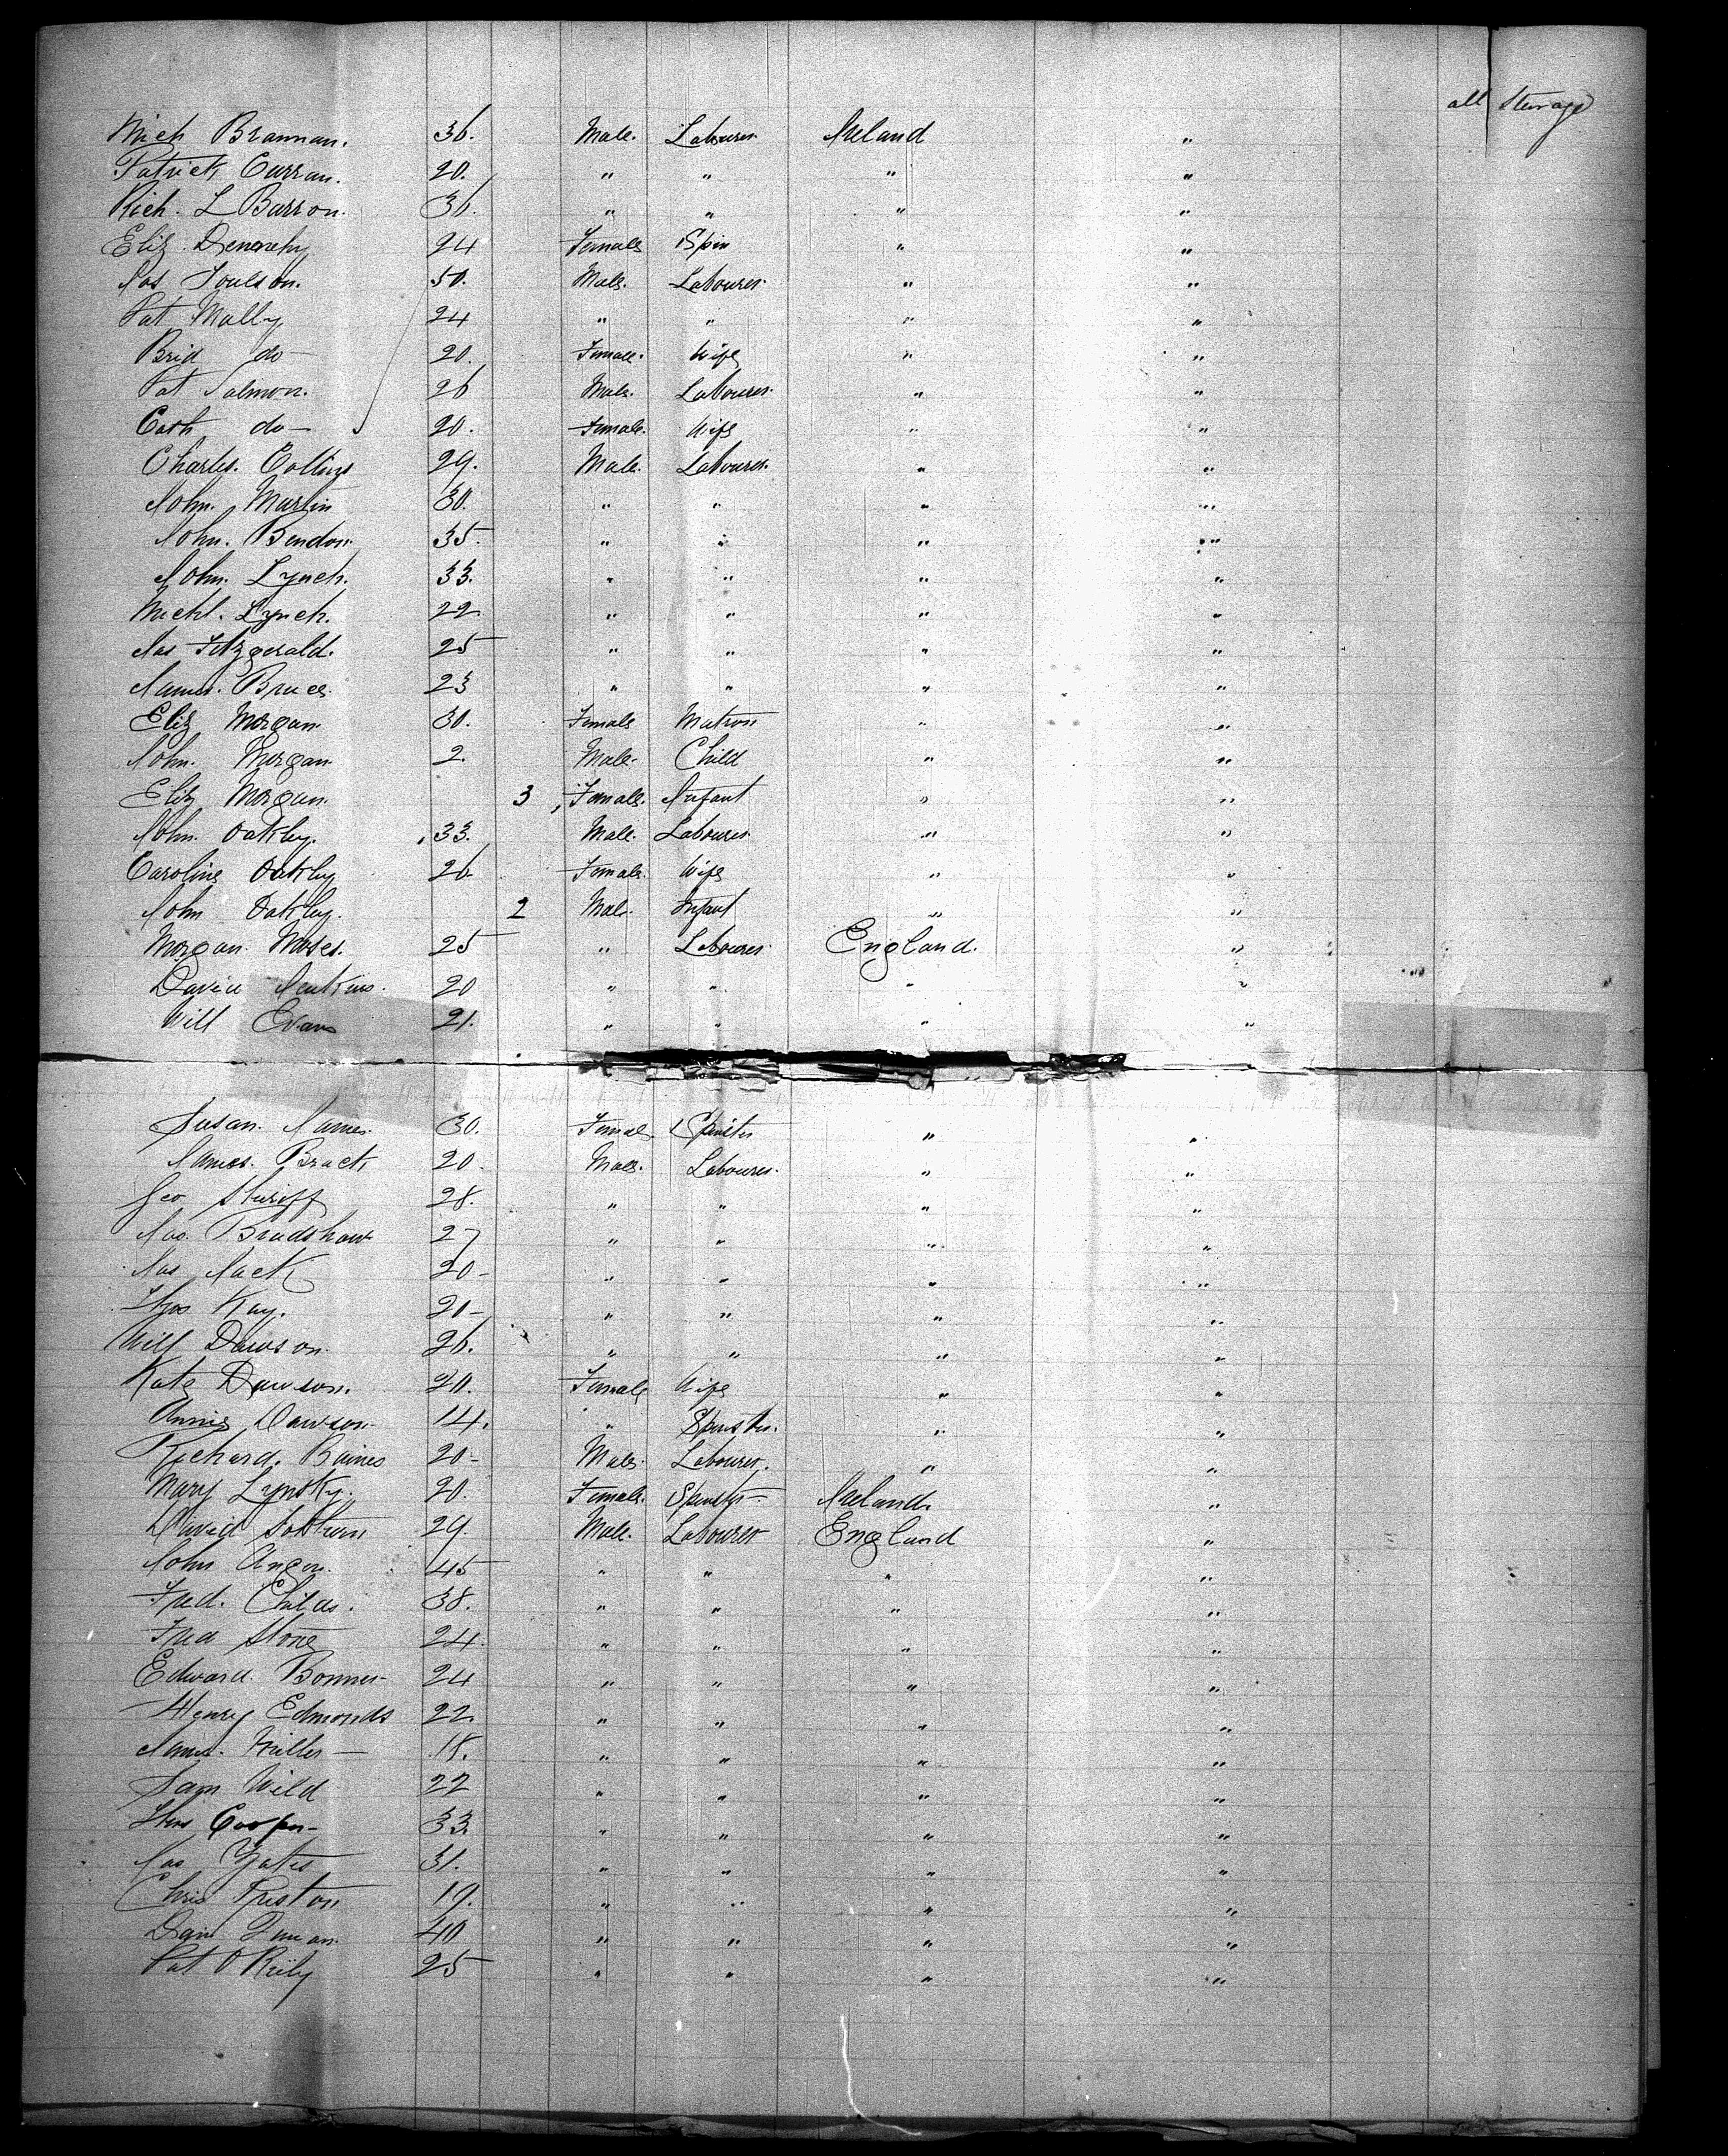 all Sterage
Mich Brannan. 36. Male. Labourer Ireland "
Patrick Curran. 20. " " " "
Rich. L Barron. 36. " " " "
Eliz. Dennehy 24 Female Spin " "
Jas Toulson. 50. Male. Labourer " "
Pat Mally 24 " " " "
Brid do 20. Female. Wife " "
Pat Salmon. 26 Male. Labourer " "
Cath do 20. Female. Wife " "
Charles. Collins 29. Male. Labourer. " "
John. Martin 30. " " " "
John. Bendon 35. " " " "
John. Lynch. 33. " " " "
Michl. Lynch. 22. " " " "
Jas Fitzgerald. 25 " " " "
James. Bruce. 23 " " " "
Eliz Morgan 30. Female Matron " "
John. Morgan 2. Male. Child " "
Eliz Morgan. 3 Female. Infant " "
John. Oakley. 33. Male. Labourer " "
Caroline Oakley 26 Female. Wife " "
John Oakley. 2 Male. Infant " "
Morgan. Moses. 25 " Labourer England. "
David Jenkins. 20 " " " "
Will Evans 21. " " " "
Susan. James. 30. Female. Spinster " "
James. Brack 20. Male. Labourer. " "
Geo Sheriff 28. " " " "
Jas. Bradshaw 27 " " " "
Jas Jack 20 " " " "
Thos Kay. 20 " " " "
Will Dawson 26. " " " "
Kate Dawson. 20. Female Wife " "
Annie Dawson 14. " Spinster. " "
Richard. Baines 20 Male. Labourer. " "
Mary Lynsky. 20. Female. Spinster Ireland. "
David 29. Male. Labourer England "
John 45 " " " "
Fred. Childs. 38. " " " "
Fred Stone 24. " " " "
Edward. Bonner 24 " " " "
Henry Edmonds 22. " " " "
James. Miller 18. " " " "
Sam Wild 22 " " " "
Thos Cooper 33. " " " "
Jas Yates 31. " " " "
Chris Preston 19. " " " "
40 " " " "
Pat O Reily 25 " " " "